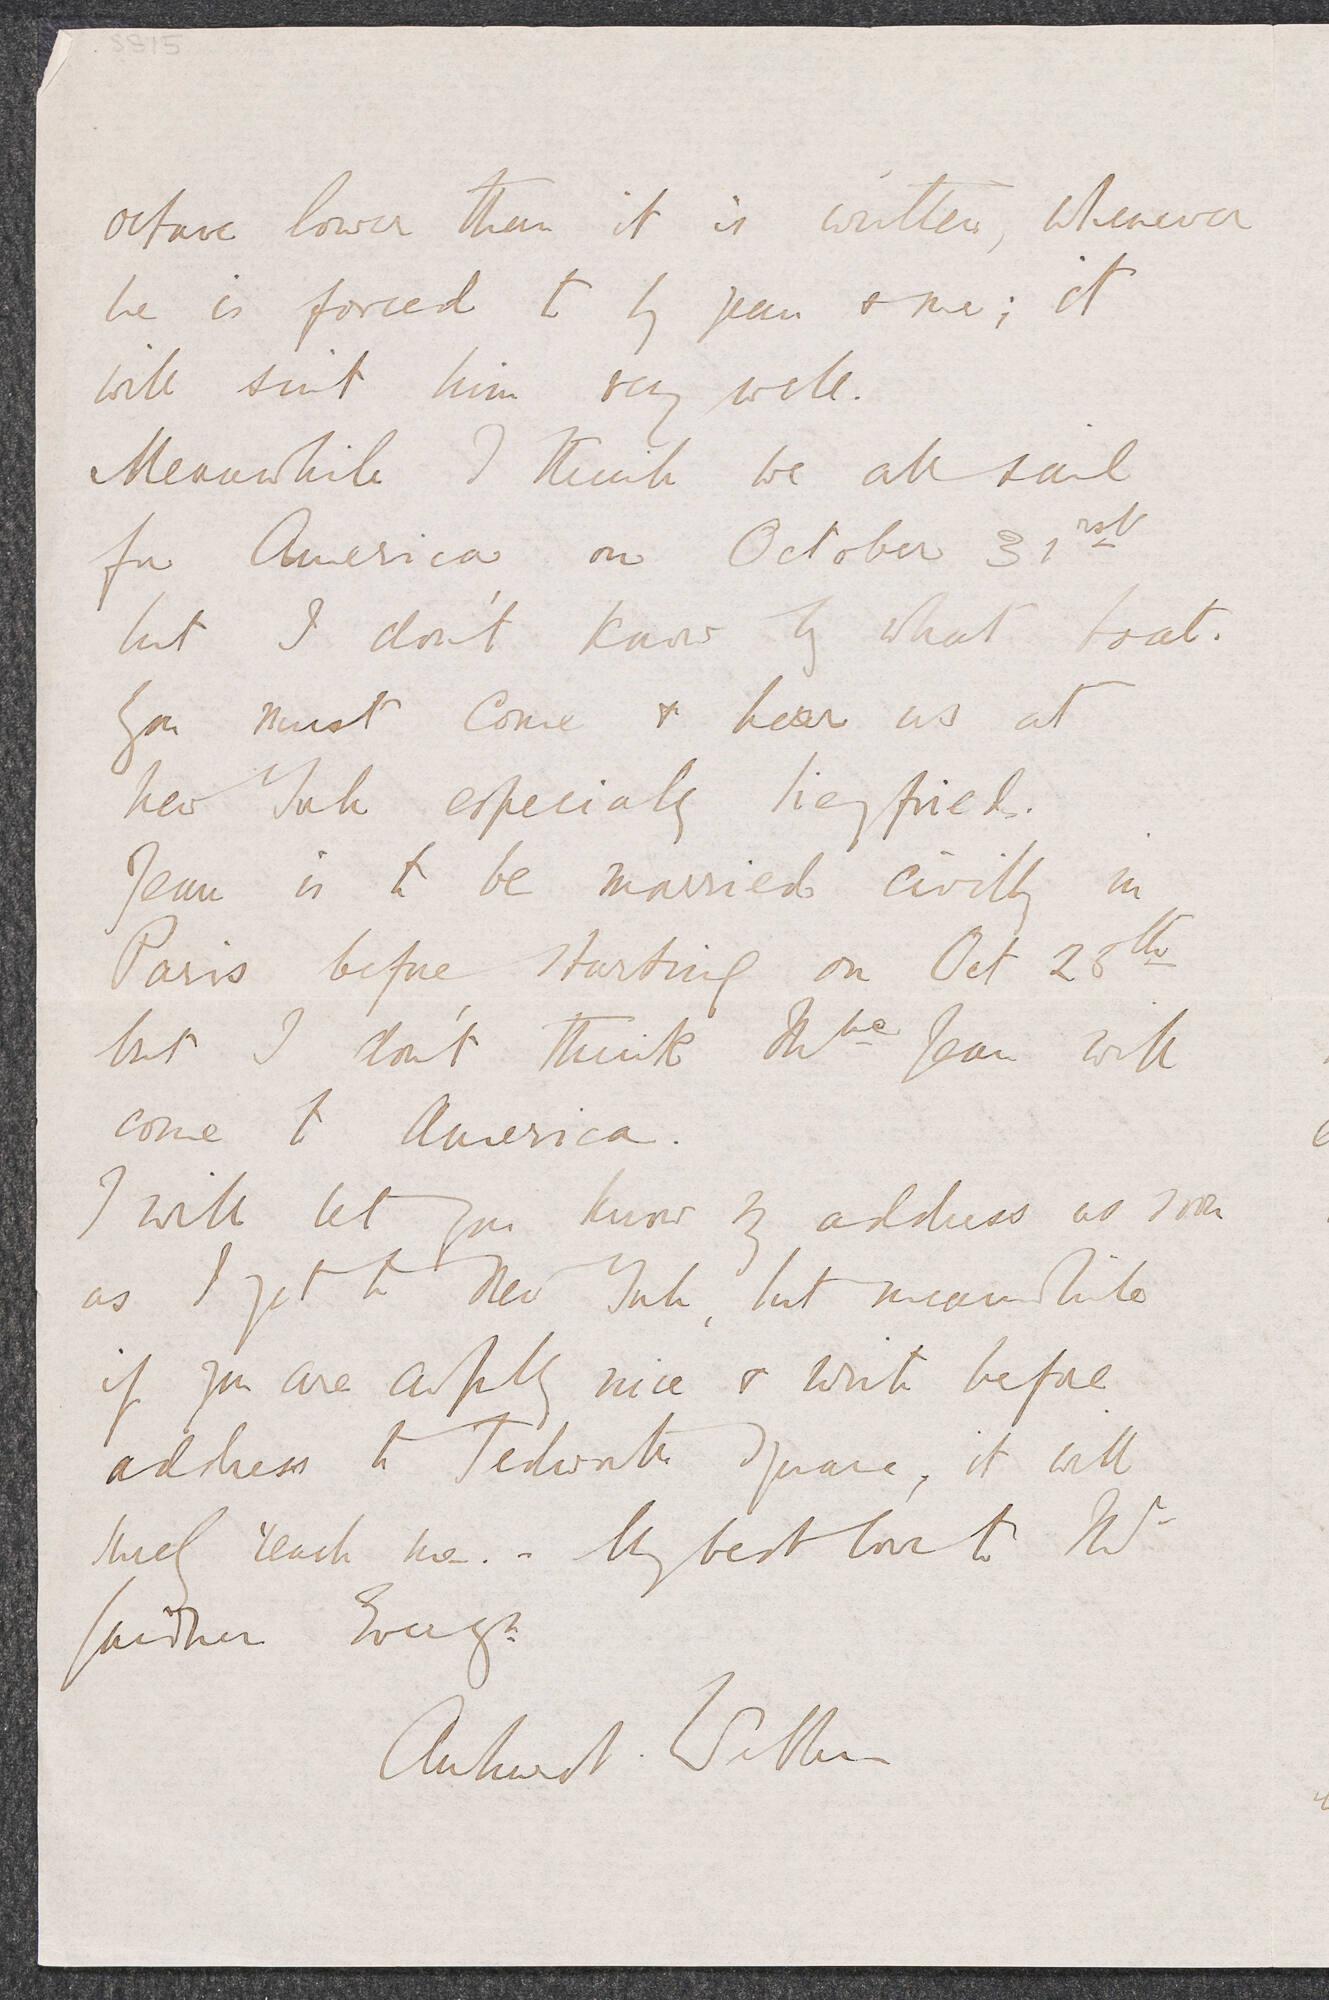 octave lower than it is written, whenever
he is forced to by Jean & me; it
will suit him very well.
Meanwhile I think we all sail
for America on October 31rst
but I don't know by what boat.
You must come & hear us at
New York especially Siegfried.
Jean is to be married civilly in
Paris before starting on Oct 28th
but I don't think Mme Jean will
come to America.
I will let you know my address as soon
as I get to New York, but meanwhile
if you are awfully nice & write before
address to Tedworth Square, it will
surely reach me. - My best love to Mr
Gardner Ever yrs
Amherst Webber